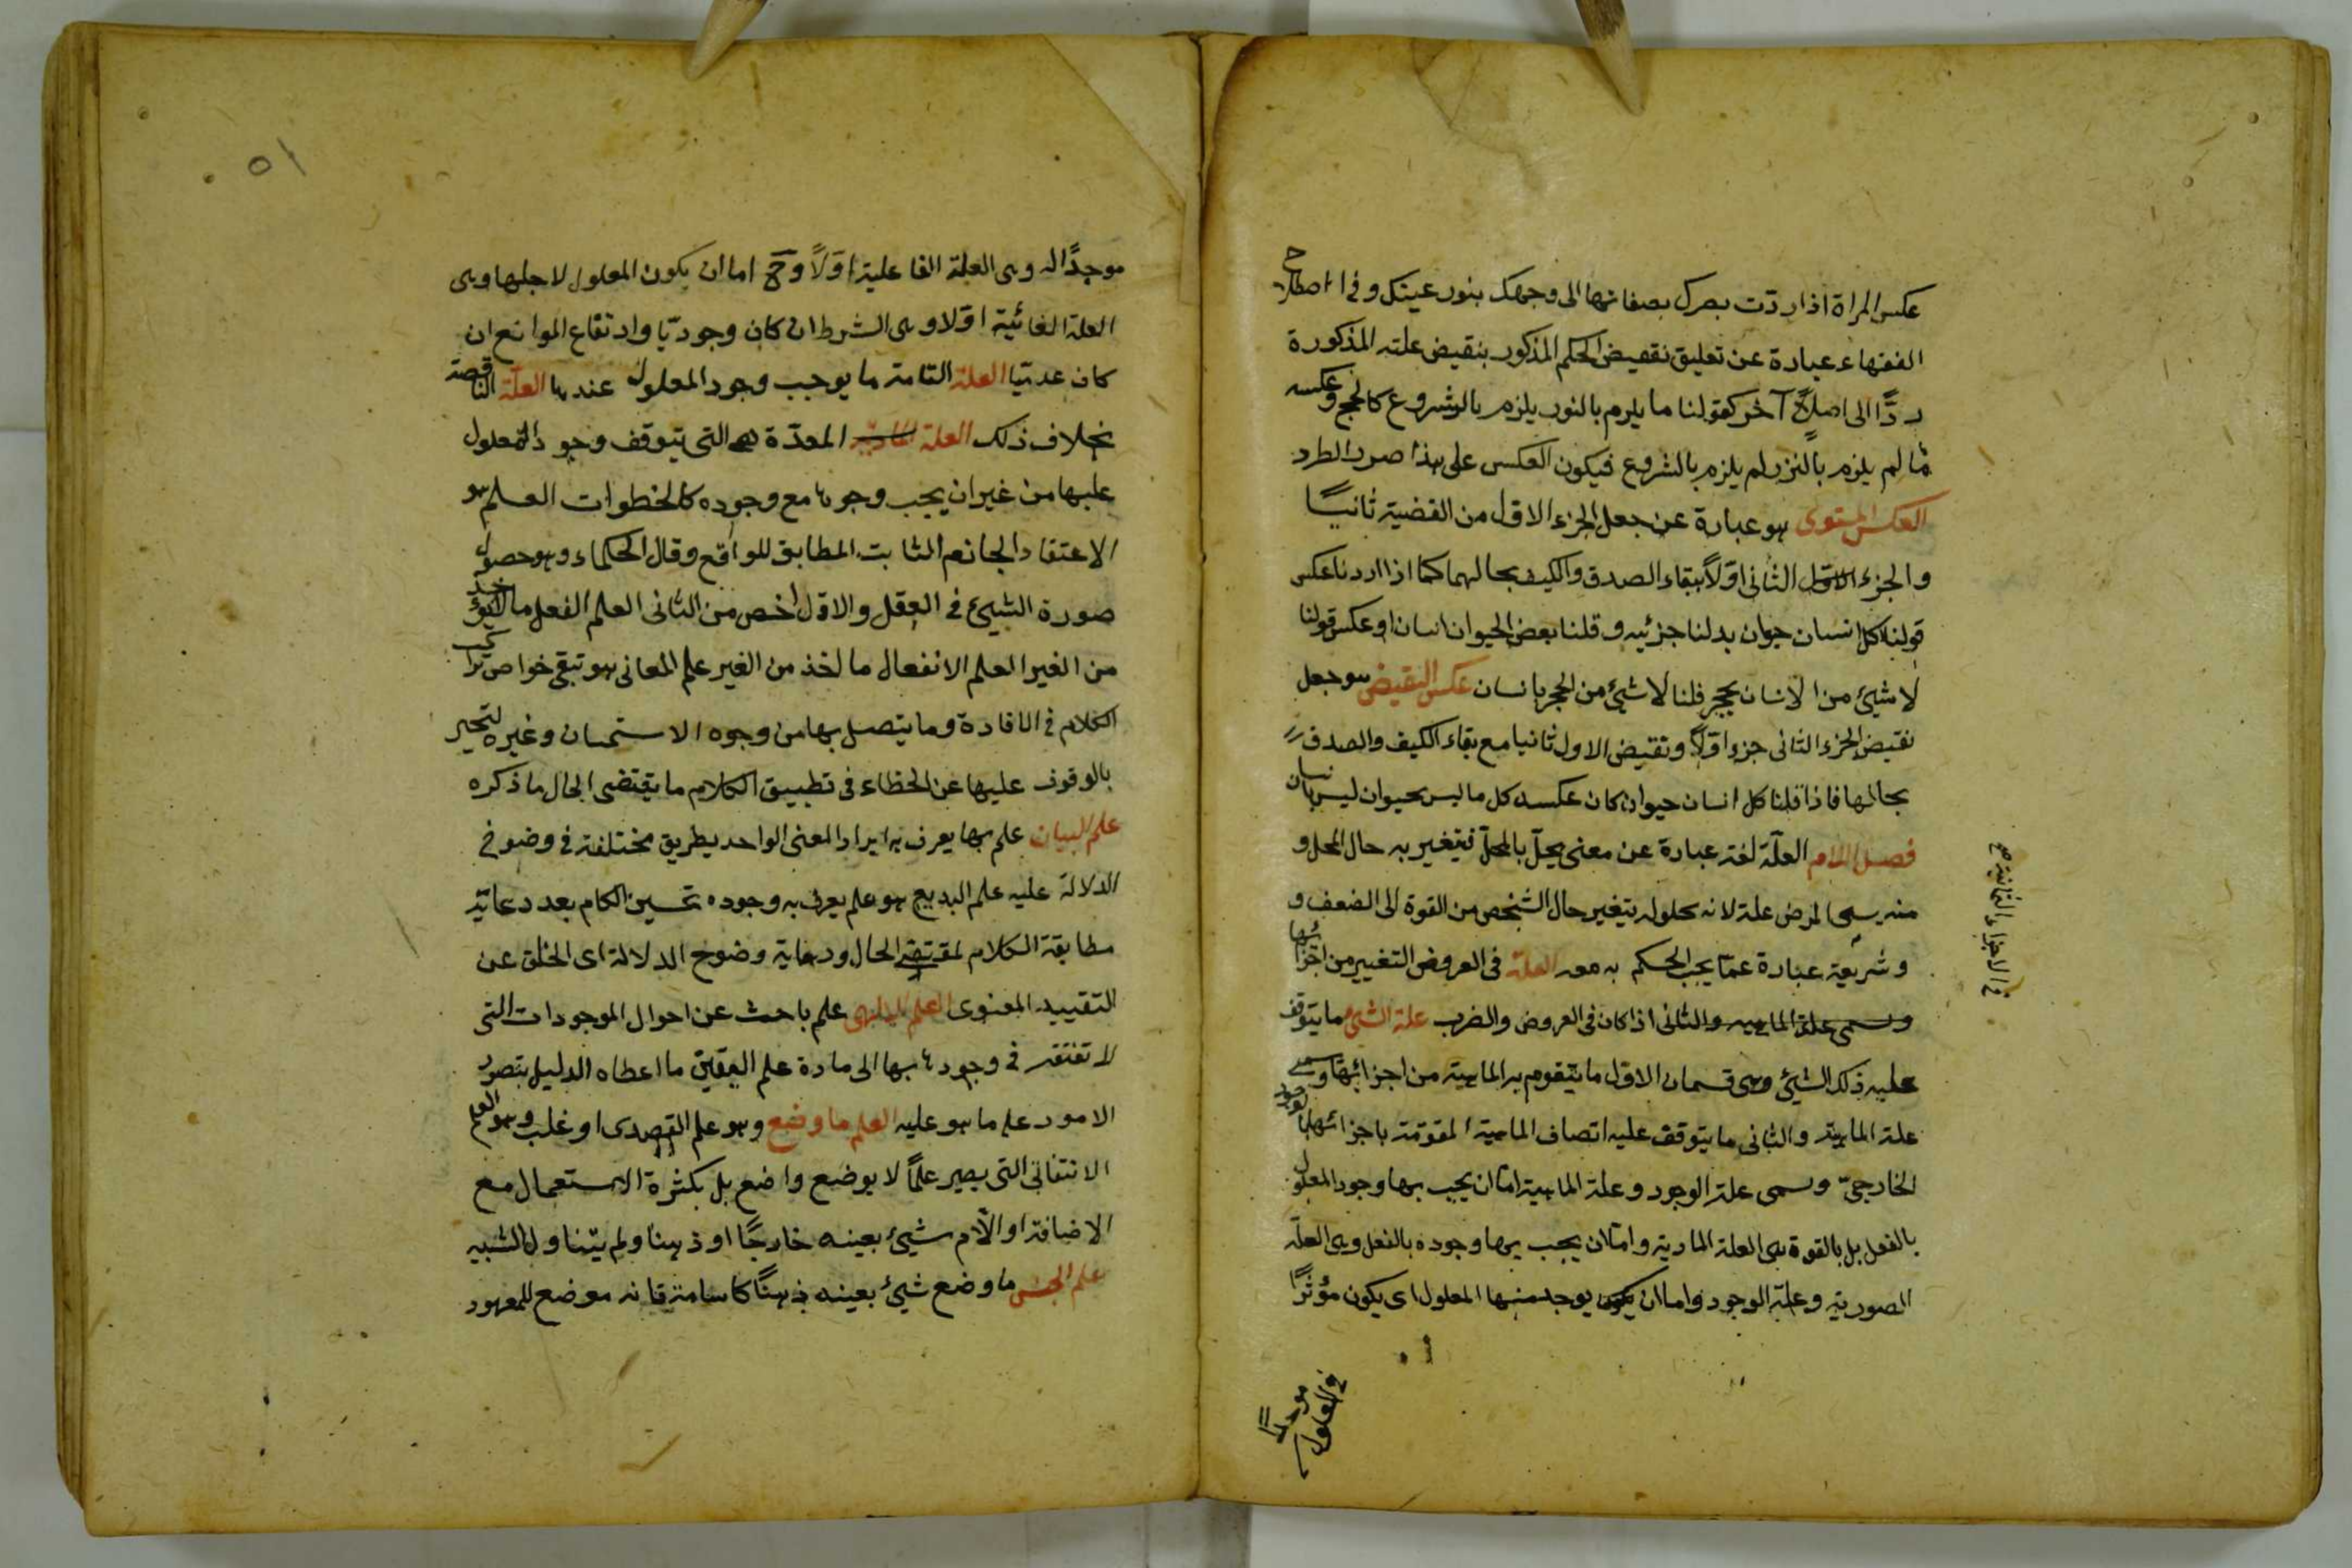 عكس المراة اذا ردّت بصرك بصفائها الى وجهك بنور عينك وفى اصطلاح
الفقهاء عبارة عن تعليق نقيض الحكم المذكور بنقيض علته المذكورة
ردًّا الى اصلٍ آخر كقولنا ما يلزم بالنذر يلزم بالشروع كالحج وعكسه
ما لم يلزم بالنذر لم يلزم بالشروع فيكون العكس على هذا ضد الطرد
العكس المستوى هو عبارة عن جعل الجزء الاول من القضية ثانيًا
والجزء الثانى اوّلاً ببقاء الصدق والكيف بحالهما كما اذا اردنا عكس
قولنا كل انسان حيوان بدلنا جزئيه وقلنا بعض الحيوان انسان او عكس قولنا
لا شيئ من الانسان بحجر قلنا لا شيئ من الحجر بانسان عكس النقيض هو جعل
نقيض الجزء الثانى جزء اوّلاً ونقيض الاول ثانيا مع بقاء الكيف والصدق
بحالهما فاذا قلنا كل انسان حيوان كان عكسه كل ما ليس بحيوان ليس بانسان
فصل اللام العلّة لغة عبارة عن معنى يحلّ بالمحلّ فيتغير به حال المحل و
منه يسمى المرض علة لانه بحلوله يتغير حال الشخص من القوة الى الضعف و
وشريعة عبارة عمّا يجب الحكم به معه العلة فى العروض التغيير من اجزائها
وسمى علة الماهية والثانى اذا كان فى العروض والضرب علة الشيئ ما يتوقف
عليه ذلك الشيئ وهى قسمان الاول ما يتقوم به الماهية من اجزائها وسمى
علة الماهية والثانى ما يتوقف عليه اتصاف الماهية المقومة باجزائها بالوجود
الخارجىّ وسمى علة الوجود وعلة الماهية امّا ان يجب بها وجود المعلول
بالفعل بل بالقوة هى العلة المادية وامّا ان يجب بها وجوده بالفعل وهى العلة
الصورية وعلة الوجود واما ان يوجد منها المعلول اى يكون مؤثرًا
فى الاجزاء الثمانية صح
فى المعلول
موجدًا
٥١
موجدًا له وهى العلة الفاعلية اوّلاً وح اما ان يكون المعلول لاجلها وهى
العلة الغائية اوّلا وهى الشرط ان كان وجوديّا وارتفاع الموانع ان
كان عدميّا العلة التامة ما يوجب وجود المعلول عندها العلّة الناقصة
بخلاف ذلك العلة المعدّة هى التى يتوقف وجود المعلول
عليها من غير ان يجب وجودها مع وجوده كالخطوات العلم هو
الاعتقاد الجازم الثابت المطابق للواقع وقال الحكماء وهو حصول
صورة الشيئ فى العقل والاول اخص من الثانى العلم الفعل ما لا يؤخذ
من الغير العلم الانفعال ما اخذ من الغير علم المعانى هو تتبع خواص تراكيب
الكلام فى الافادة وما يتصل بها من وجوه الاستحسان وغيره لتحير
بالوقوف عليها عن الخطاء فى تطبيق الكلام ما يقتضى الحال ما ذكره
علم البيان علم بها يعرف به ايراد المعنى الواحد بطريق مختلفة فى وضوح
الدلالة عليه علم البديع هو علم يعرف به وجوده تحسين الكلام بعد رعاية
مطابقة الكلام لمقتضى الحال ورعاية وضوح الدلالة اى الخلق عن
التقييد المعنوى العلم الالهى علم باحث عن احوال الموجودات التى
لا تفتقر فى وجودها بها الى مادة علم اليقين ما اعطاه الدليل بتصور
الامور علم ما هو عليه العلم ما وضع وهو علم القصدى او غلب وهو العلم
الاتفاقى التى يصير علمًا لا بوضع واضع بل بكثرة الاستعمال مع
الاضافة او اللام شيئ بعينه خارجًا او ذهنا ولم يتناول الشبيه
علم الجنس ما وضع شيئ بعينه ذهنًا كاسامة فانه موضع للمعهود